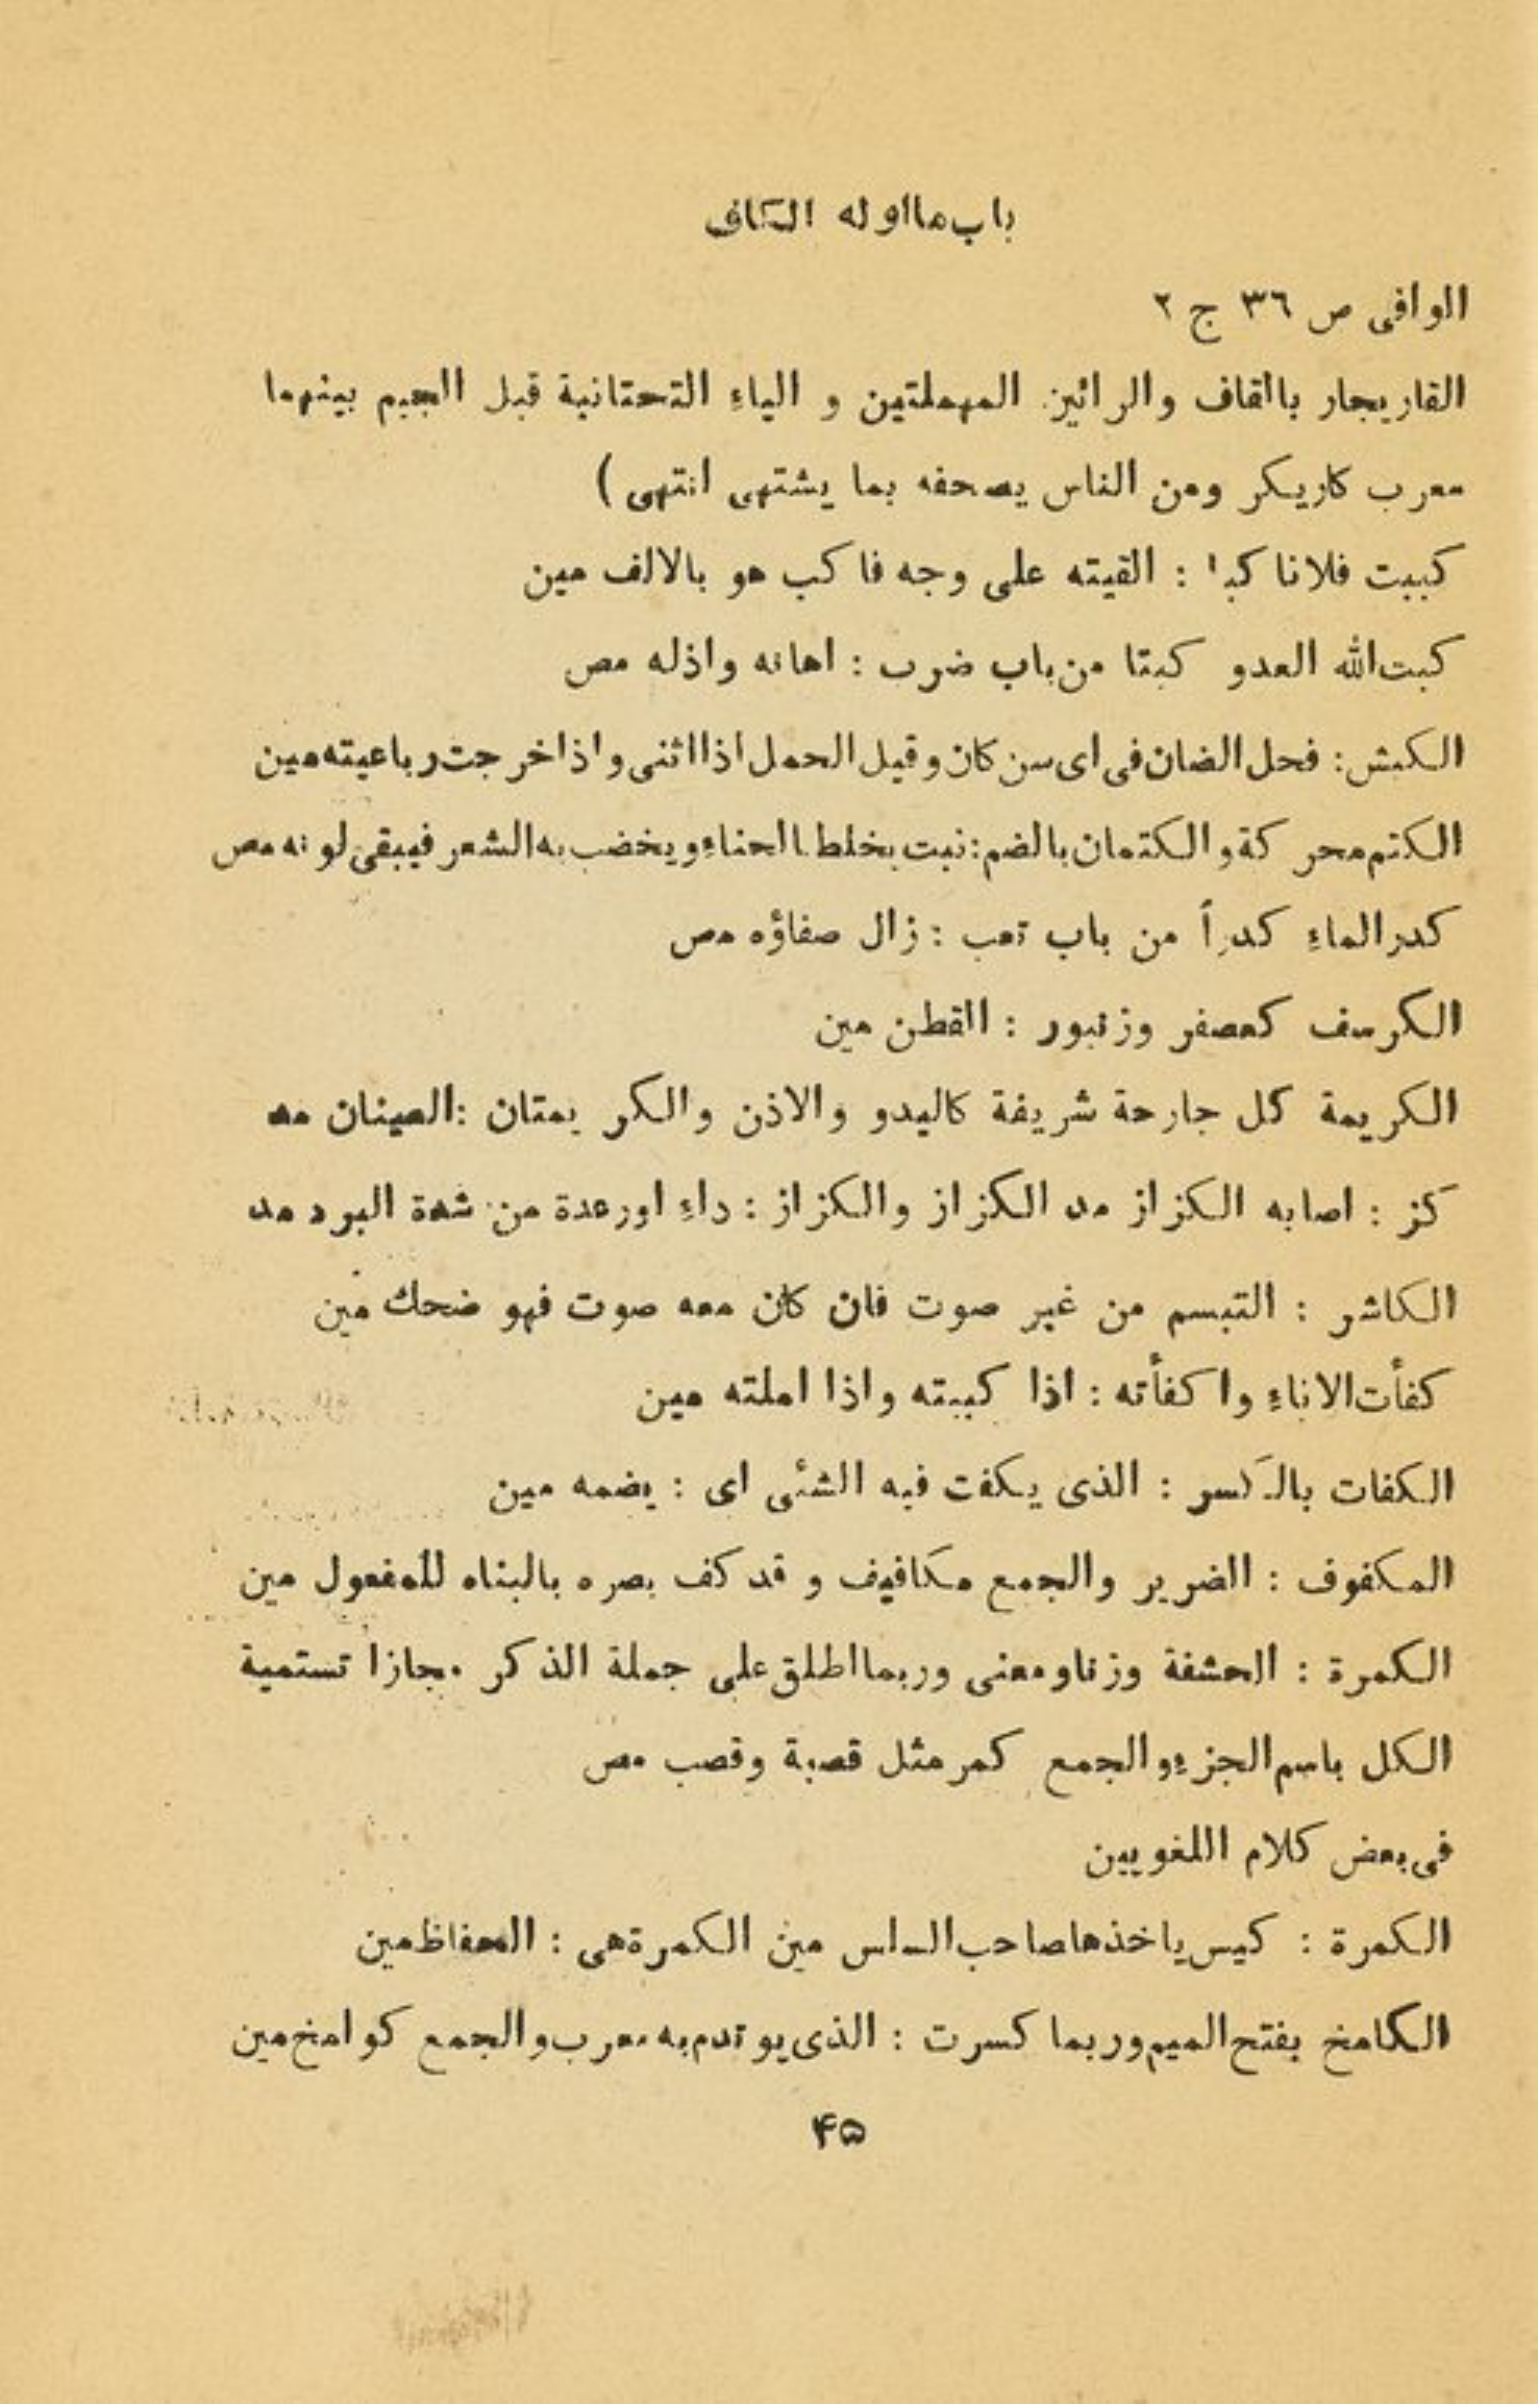 باب ما اوله الكاف
الوافى ص ٣٦ ج ٢
القاريجار بالقاف والرائين المهملتين و الياءِ التحتانية قبل الجيم بينهما
معرب كاريكر ومن الناس يصحفه بما يشتهى انتهى )
كببت فلانا كبا : القيته على وجه فا كب هو بالالف مين
كبت الله العدو كبتا من باب ضرب : اهانه واذله مص
الكبش : فحل الضان فى اى سن كان وقيل الحمل اذا اثنى واذا خرجت رباعيته مين
الكتم محركة والكتمان بالضم : نبت يخلط بالحناءِ ويخضب به الشعر فيبقى لونه مص
كدر الماءِ كدراً من باب تعب : زال صفاؤه مص
الكرسف كعصفر وزنبور : القطن مين
الكريمة كل جارحة شريفة كاليدو والاذن والكريمتان : العينان مع
كز : اصابه الكزاز مد الكزاز والكزاز : داءِ اورعدة من شدة البرد مد
الكاشر : التبسم من غير صوت فان كان معه صوت فهو ضحك مين
كفأت الاناءِ واكفأته : اذا كببته واذا املته مين
الكفات بالكسر : الذى يكفت فيه الشئى اى : يضمه مين
المكفوف : الضرير والجمع مكافيف و قد كف بصره بالبناه للمفعول مين
الكمرة : الحشفة وزنا ومعنى وربما اطلق على جملة الذكر مجازا تستمية
الكل باسم الجزءِ والجمع كمر مثل قصبة وقصب مص
فى بعض كلام اللغويين
الكمرة : كيس ياخذها صاحب السلس مين الكمرة هى : الحفاظ مين
الكامخ بفتح الميم وربما كسرت : الذى يوتدم به معرب والجمع كوامخ مين
۴۵